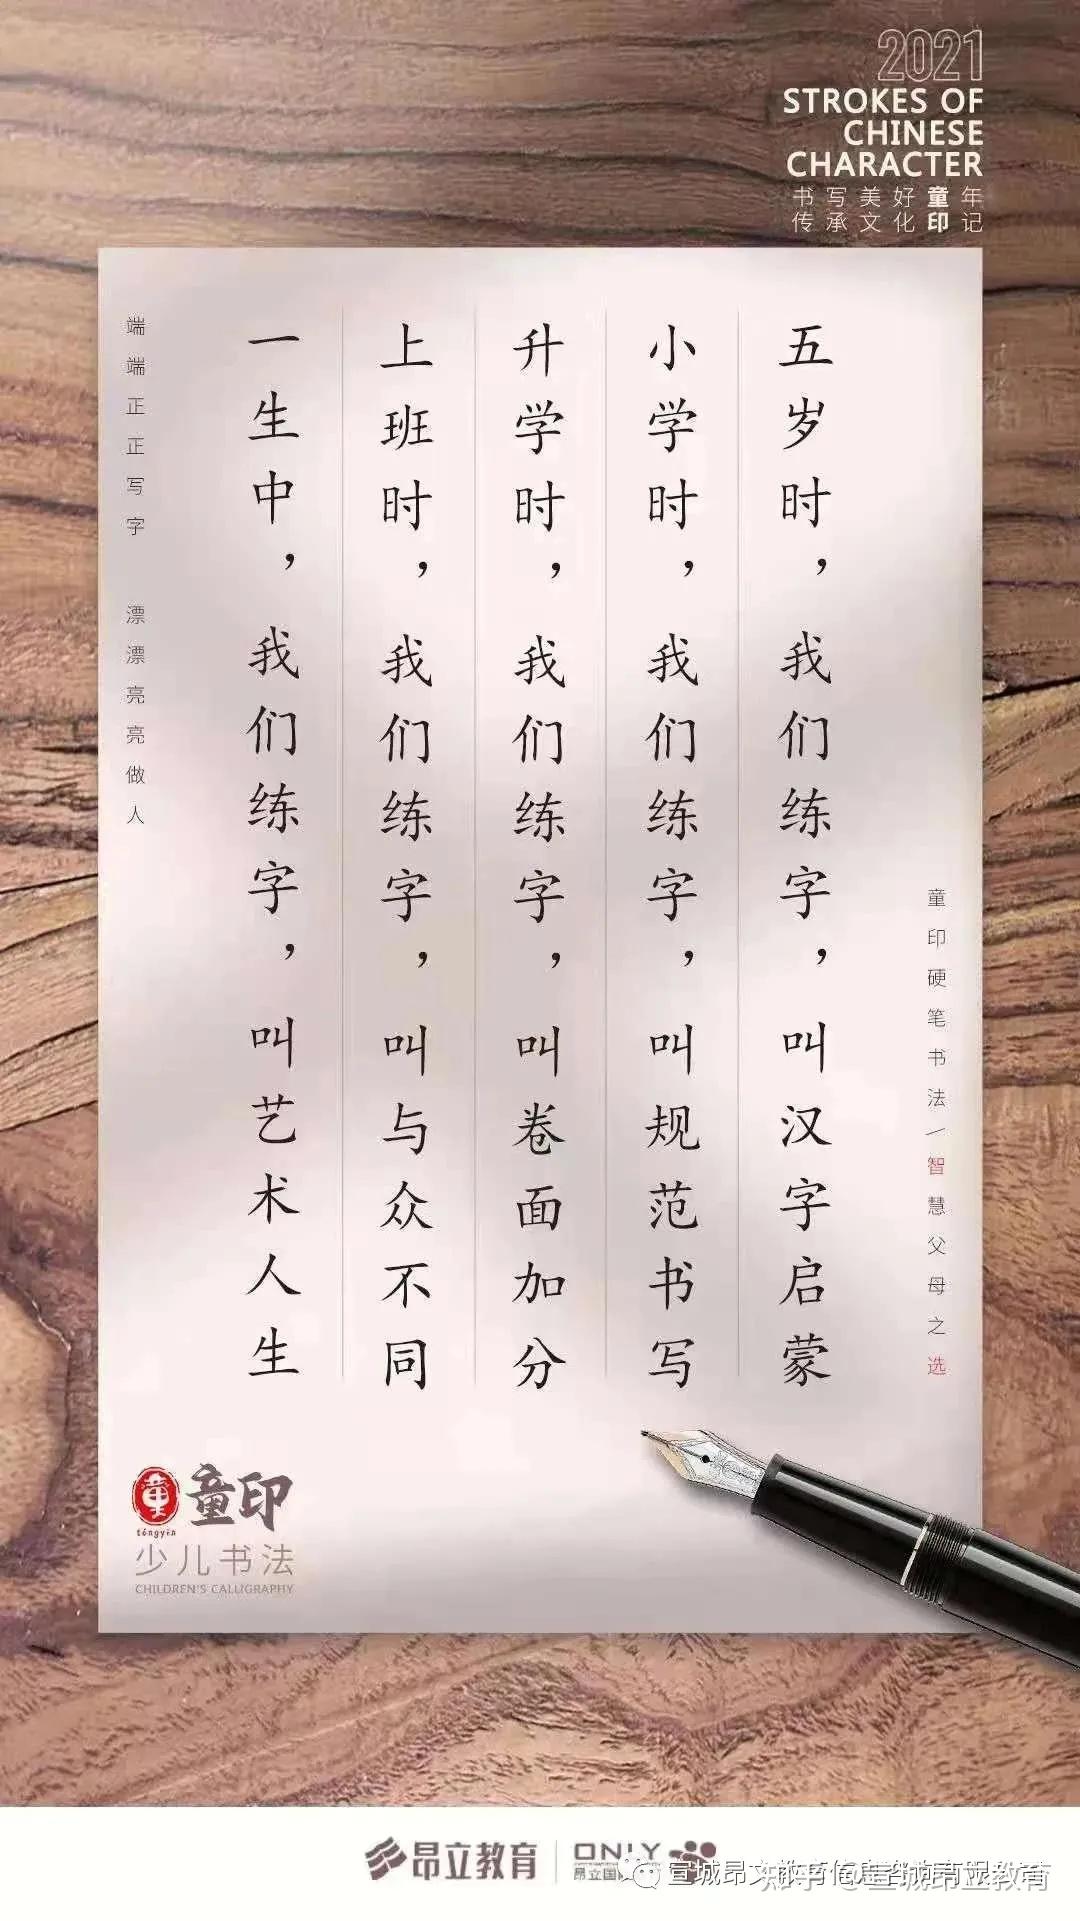 2021
STROKES OF
CHINESE
CHARACTER
书写美好童年
传承文化印记
五岁时，我们练字，叫汉字启蒙
小学时，我们练字，叫规范书写
升学时，我们练字，叫卷面加分
上班时，我们练字，叫与众不同
一生中，我们练字，叫艺术人生
端端正正写字 漂漂亮亮做人
童印硬笔书法/智慧父母之选
童印
tóngyìn
少儿书法
CHILDREN'S CALLIGRAPHY
昂立教育
ONLY
昂立国
知乎 @宣城昂立教育